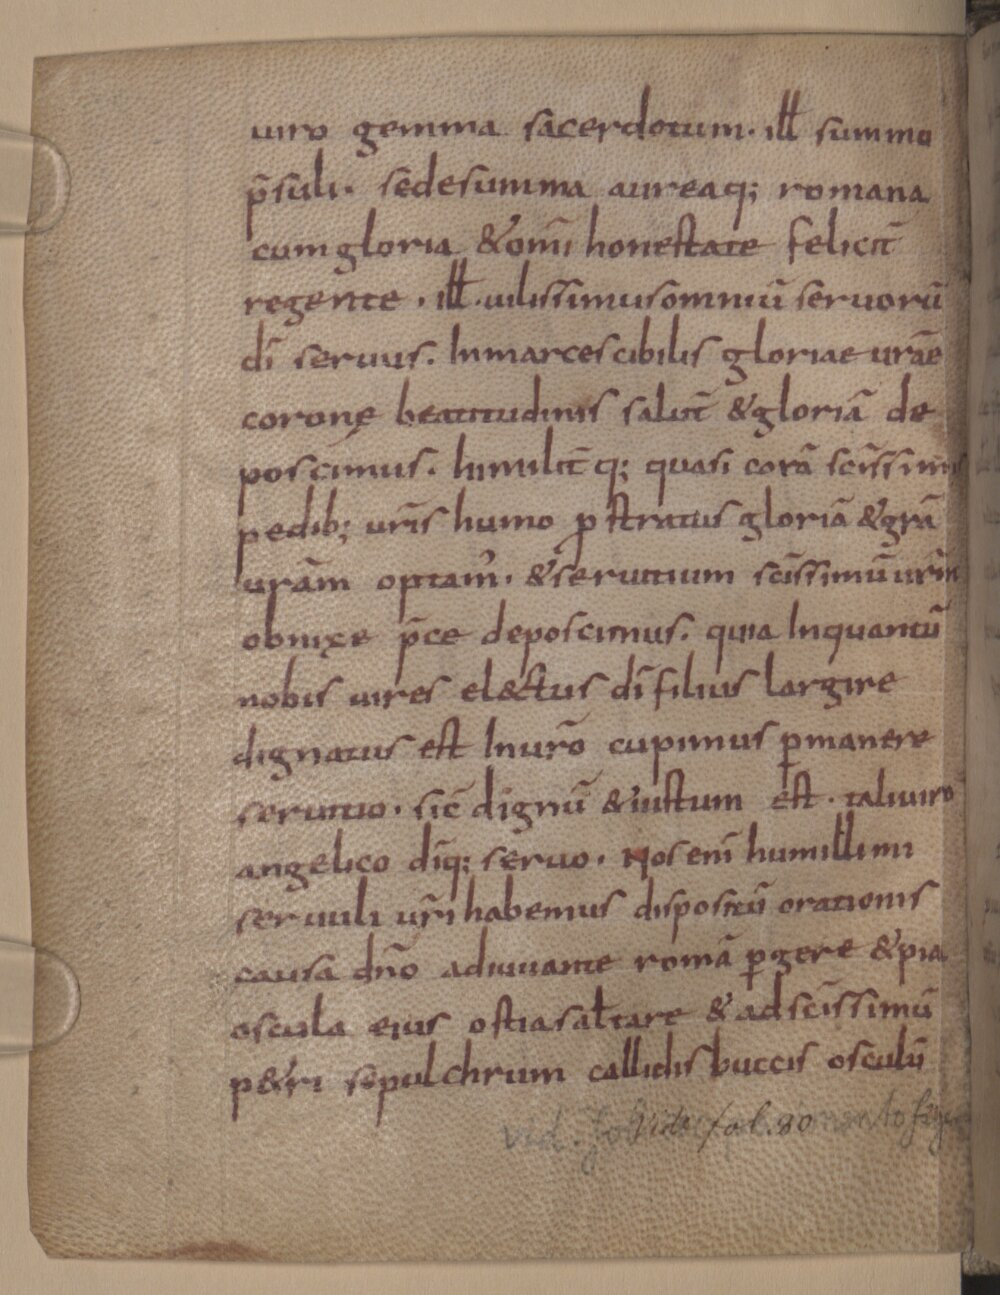 uiro gemma sacerdotum· ill̄ summo
p̄suli· sedesumma aureaq; romana
cumgloria &om̄i honestate felicit̄
regente · ill̄· uilissimusomniū seruorū
dī seruus. Inmarcescibilis gloriae urāe
coronę beatitudinis salut̄ &gloriā de
poscimus. humilit̄ q; quasi corā sc̄issimis
pedib; ur̄is humo prostratus gloriā &grā
urām optam᾽· &seruitium sc̄issimū urm̄
obnixe p̄ce deposcimus. quia Inquantū
nobis uires el&ctus dī filius largire
dignatus est Inur̄o cupimus ꝑmanere
seruitio · sic̄ dignū &iustum est · taliuiro
angelico dīq; seruo· Nos enī humillimi
seruuli ur̄i habemus dispositū orationis
causa dn̄o adiuuante romā ꝑgere &pia
oscula eius ostia saltare & adsc̄issimū
p&ri sepulchrum callidis buccis osculū
vid. fol
Vide fol. 80